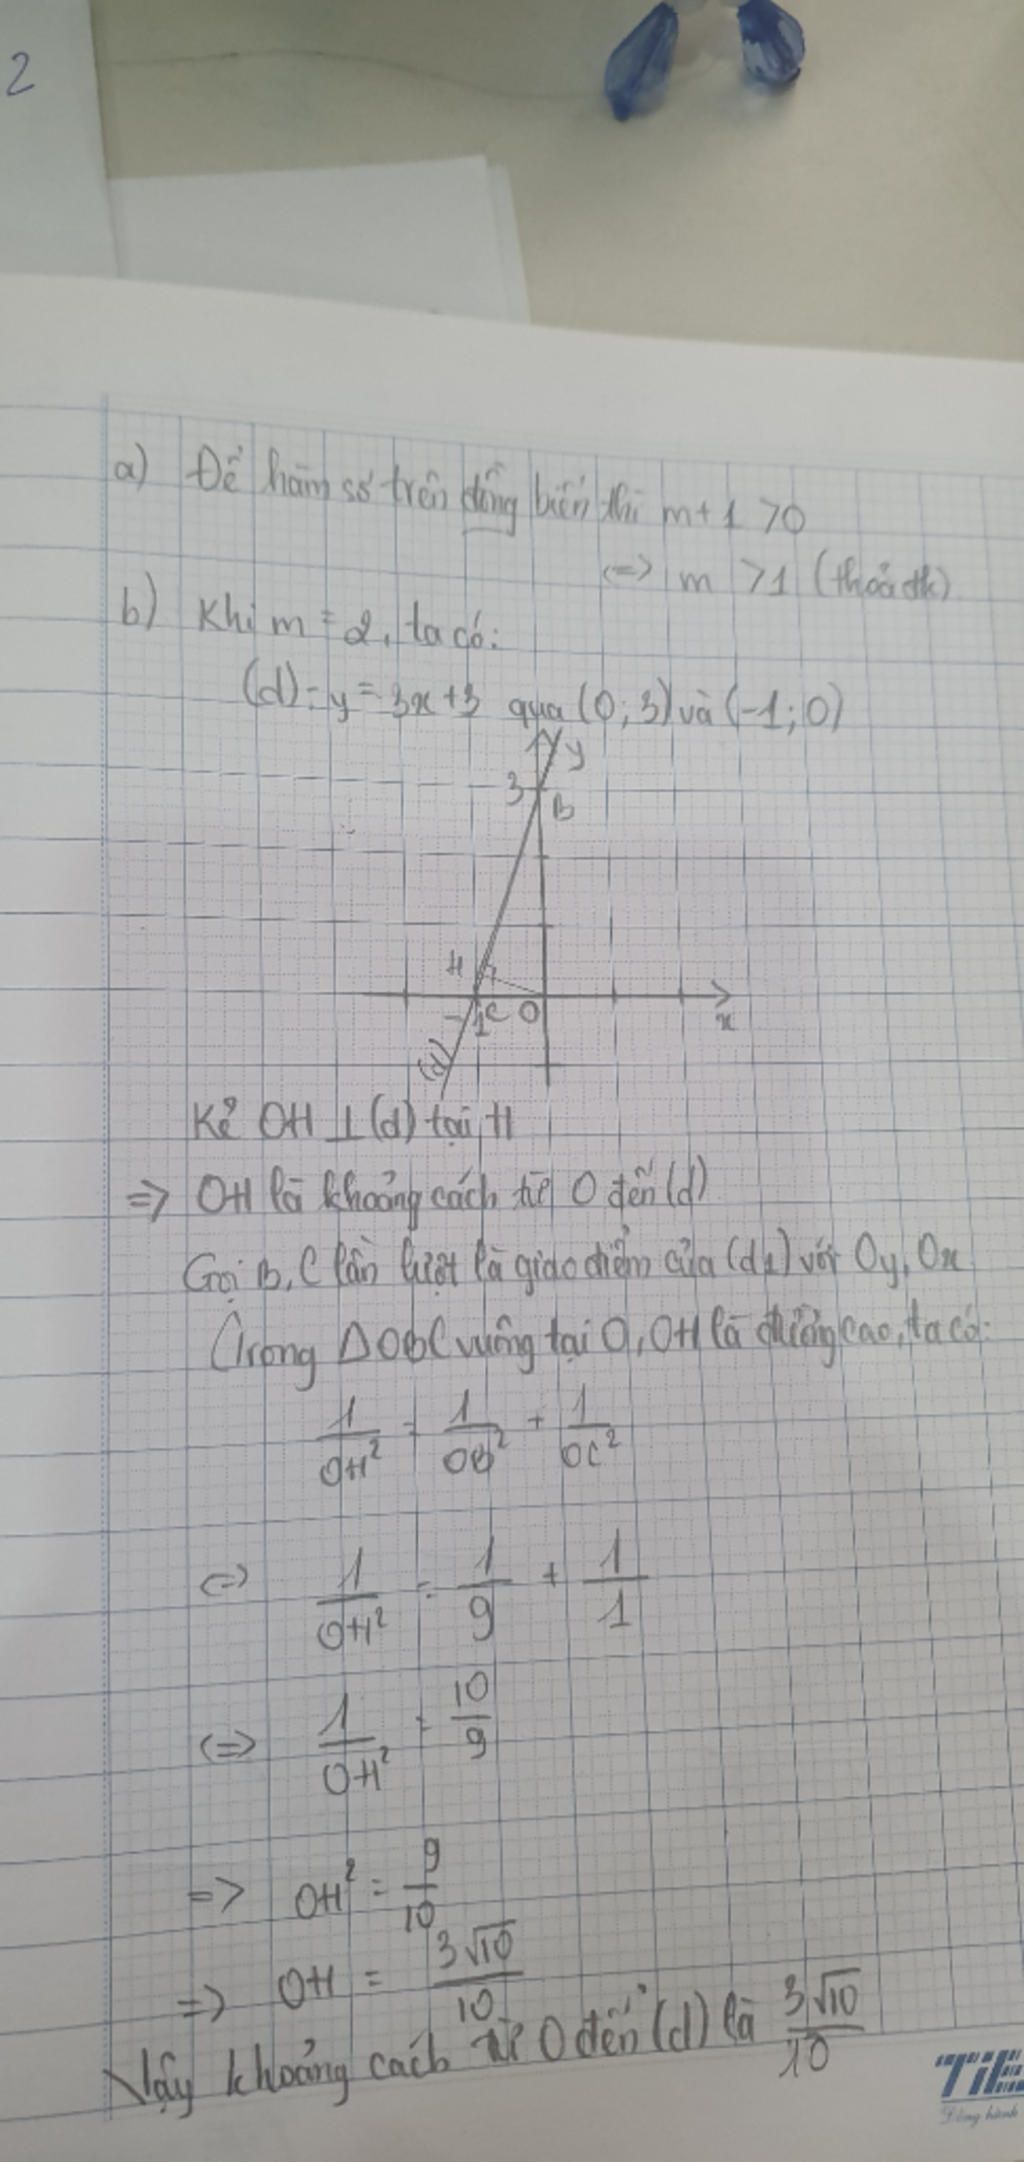 2
a) Để hàm số trên đồng biến thì m+1 >0
<=> m >1 (thoả đk)
b) Khi m = 2, ta có:
(d): y = 3x+3 qua (0; 3) và (-1; 0)
y
3
B
H
-1 C O
x
(d)
Kẻ OH ⊥ (d) tại H
=> OH là khoảng cách từ O đến (d)
Gọi B, C lần lượt là giao điểm của (d1) với Oy, Ox
Trong ΔOBC vuông tại O, OH là đường cao, ta có:
1/OH² = 1/OB² + 1/OC²
<=> 1/OH² = 1/9 + 1/1
<=> 1/OH² = 10/9
=> OH² = 9/10
=> OH = 3√10/10
Vậy khoảng cách từ O đến (d) là 3√10/10
TiE
Đồng hành